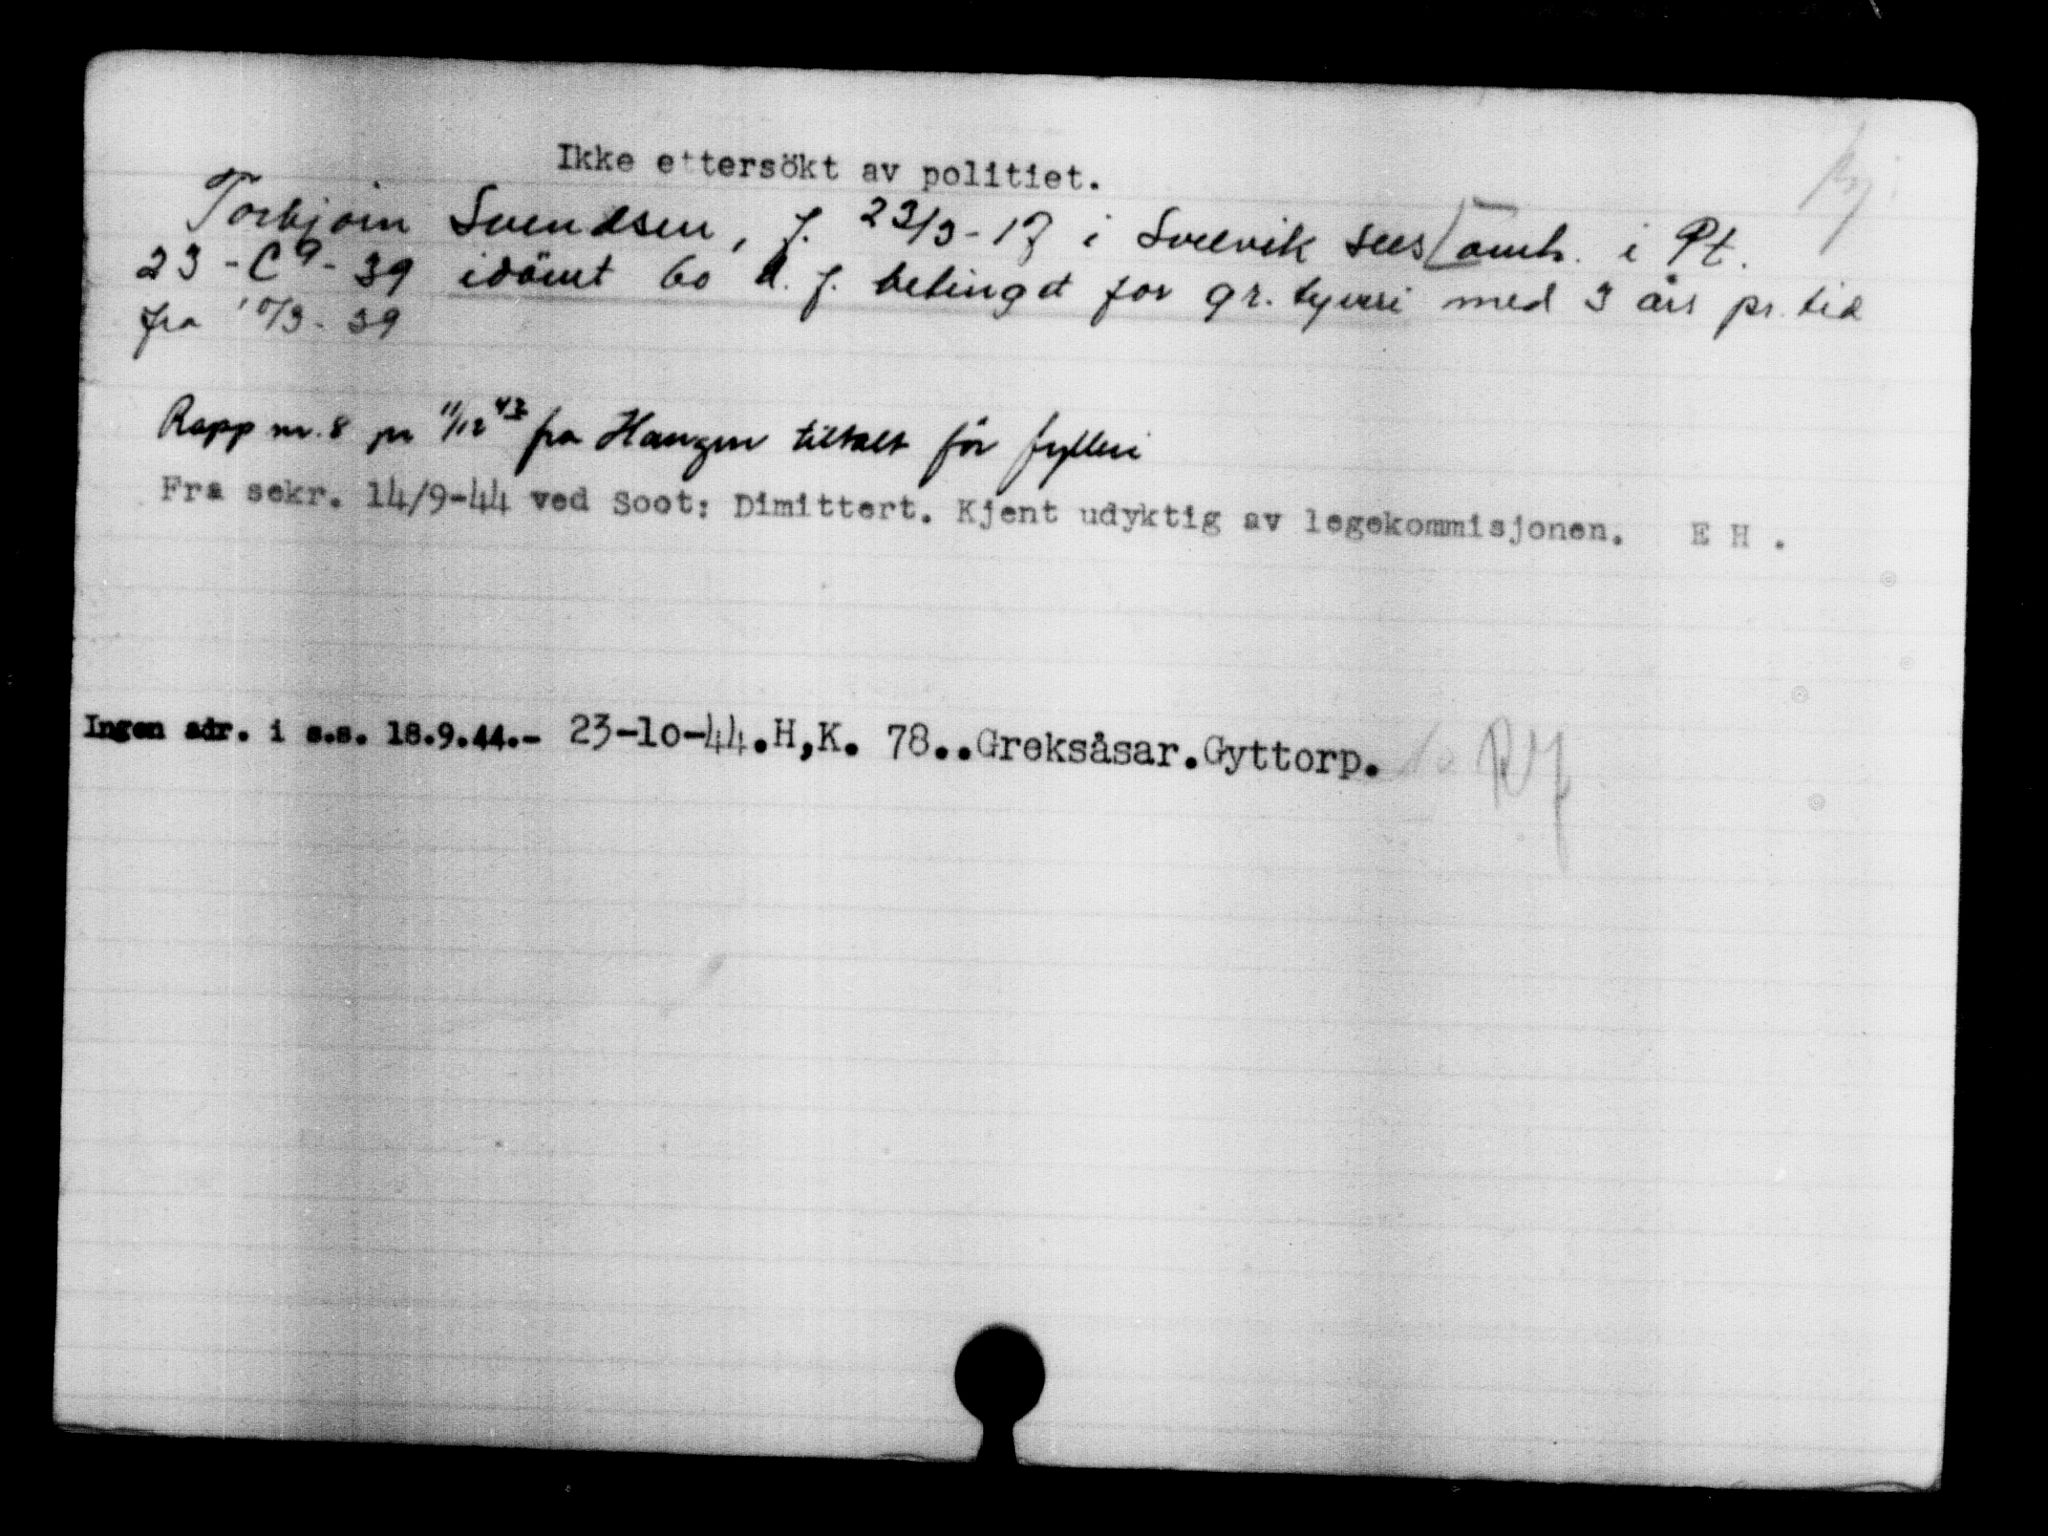 Ikke ettersökt av politiet.
Torbjörn Svendsen, f. 23/3-17 i Svelvik sees omh. i Pt.
23-C9-39 idömt 60 d. f. betinget for gr. tyveri med 3 års pr. tid
fra 10/3-39
Rapp nr. 8 pr 11/12 43 fra tiltalt för fylleri
Fra sekr. 14/9-44 ved Soot: Dimittert. Kjent udyktig av legekommisjonen. E H .
Ingen adr. i s.s. 18.9.44.- 23-10-44.H,K. 78..Greksåsar.Gyttorp.